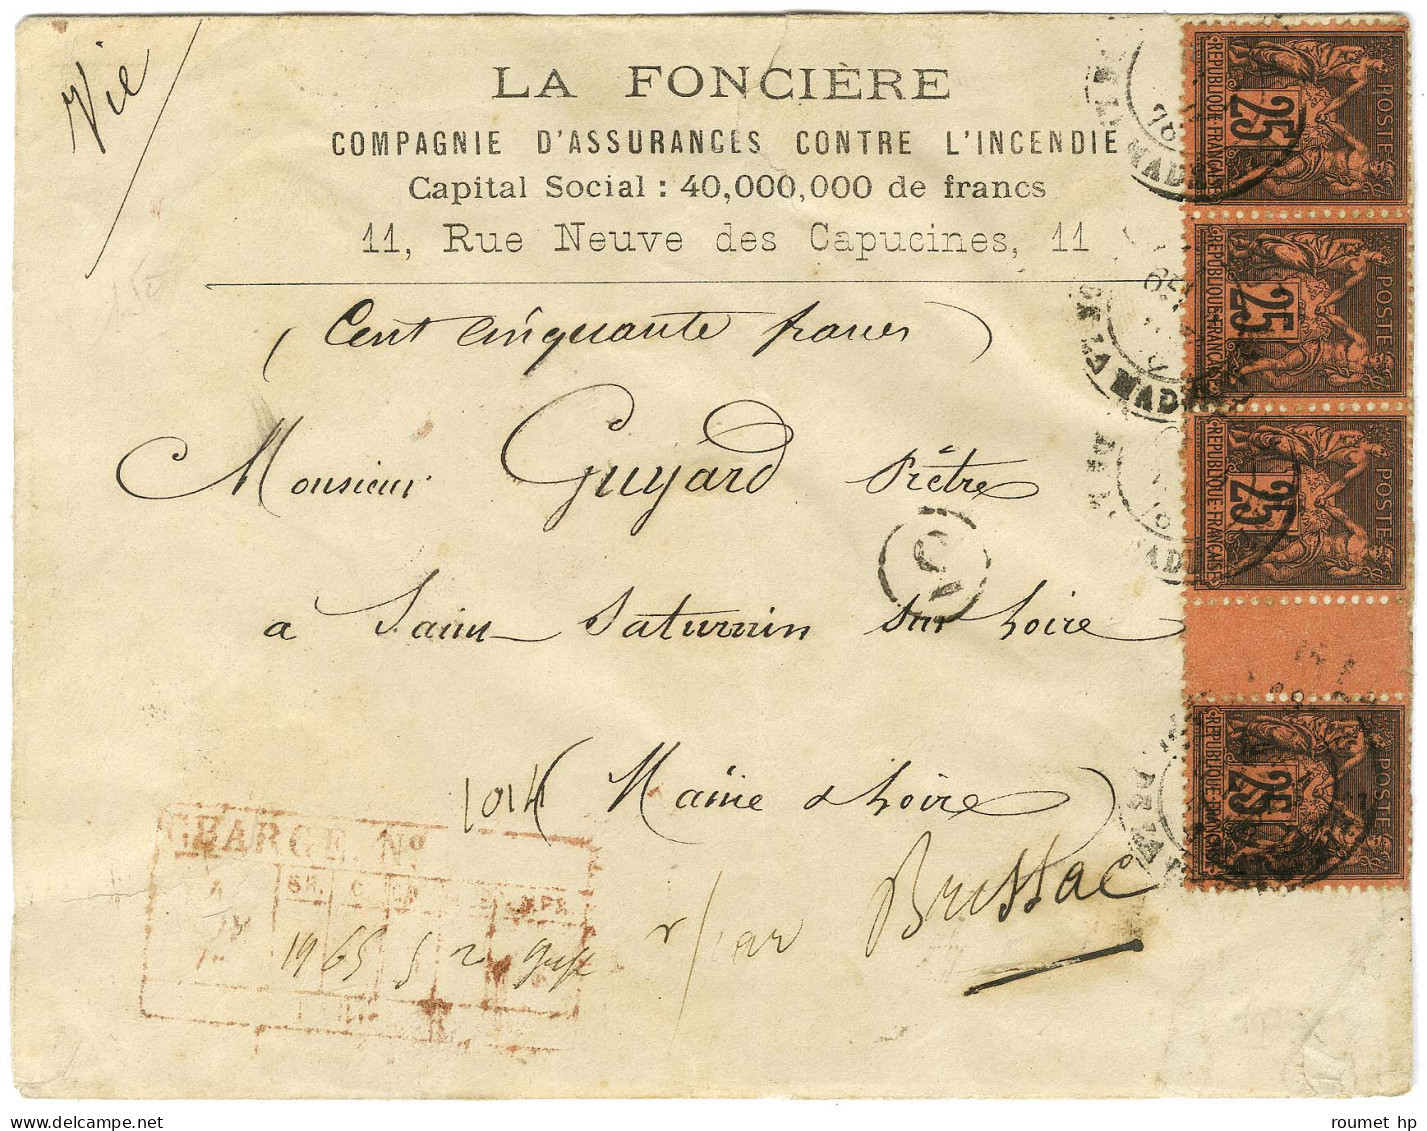 Vie
LA FONCIÈRE
COMPAGNIE D'ASSURANCES CONTRE L'INCENDIE
Capital Social : 40,000,000 de francs
11, Rue Neuve des Capucines, 11
(Cent cinquante francs)
Monsieur Guyard Prêtre
a Saint Saturnin sur Loire
(Maine & Loire)
r/par Brissac
CHARGE. Nº
REPUBLIQUE-FRANÇAISE
POSTES
25
REPUBLIQUE-FRANÇAISE
POSTES
25
REPUBLIQUE-FRANÇAISE
POSTES
25
REPUBLIQUE-FRANÇAISE
POSTES
25
roumet hp